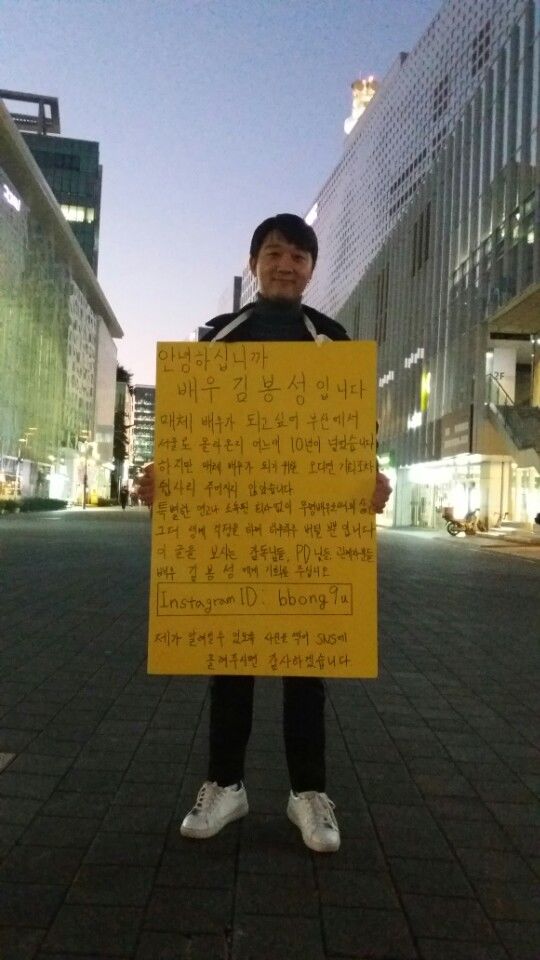 안녕하십니까
배우 김봉성입니다
매체 배우가 되고싶어 부산에서
서울로 올라온지 어느새 10년이 넘었습니다
하지만 매체 배우가 되기 위한 오디션 기회조차
쉽사리 주어지지 않았습니다
특별한 연고나 소속된 회사 없이 무명배우로서의 삶은
그저 생계 걱정을 하며 하루하루 버틸 뿐입니다
이 글을 보시는 감독님들, PD님들, 관계자분들
배우 김봉성에게 기회를 주십시오
Instagram ID: bbong9u
제가 알려질수 있도록 사진을 찍어 SNS에
올려주시면 감사하겠습니다
2F